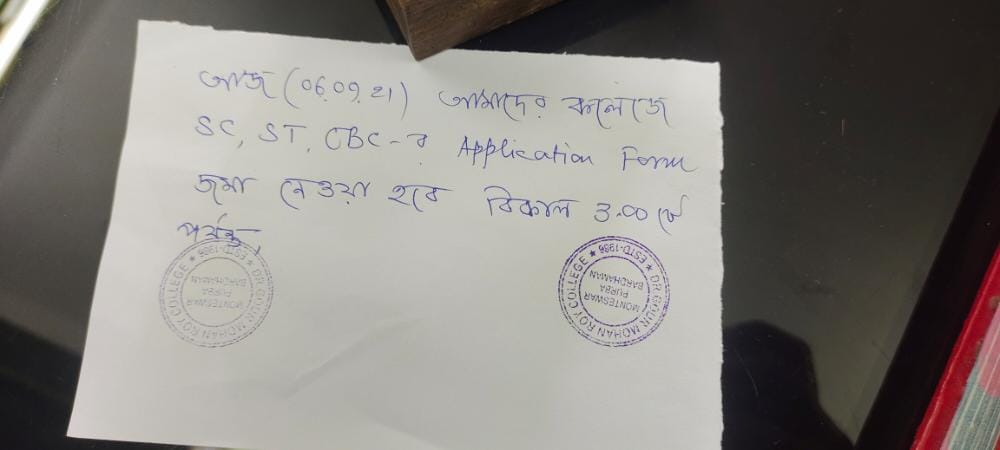 আজ (06.09.21) আমাদের কলেজে
SC, ST, OBC-র Application Form
জমা নেওয়া হবে বিকাল 3.00 টে
পর্যন্ত।
★ DR. GOUR MOHAN ROY COLLEGE ★
ESTD-1986
MONTESWAR
PURBA
BARDHAMAN
★ DR. GOUR MOHAN ROY COLLEGE ★
ESTD-1986
MONTESWAR
PURBA
BARDHAMAN